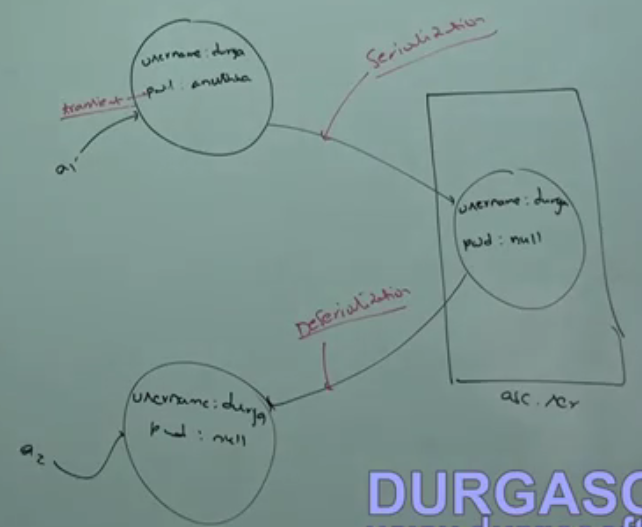 username : durga
transient
pwd : anushka
a1
Serialization
username : durga
pwd : null
Deserialization
username : durga
pwd : null
a2
abc.ser
DURGASO